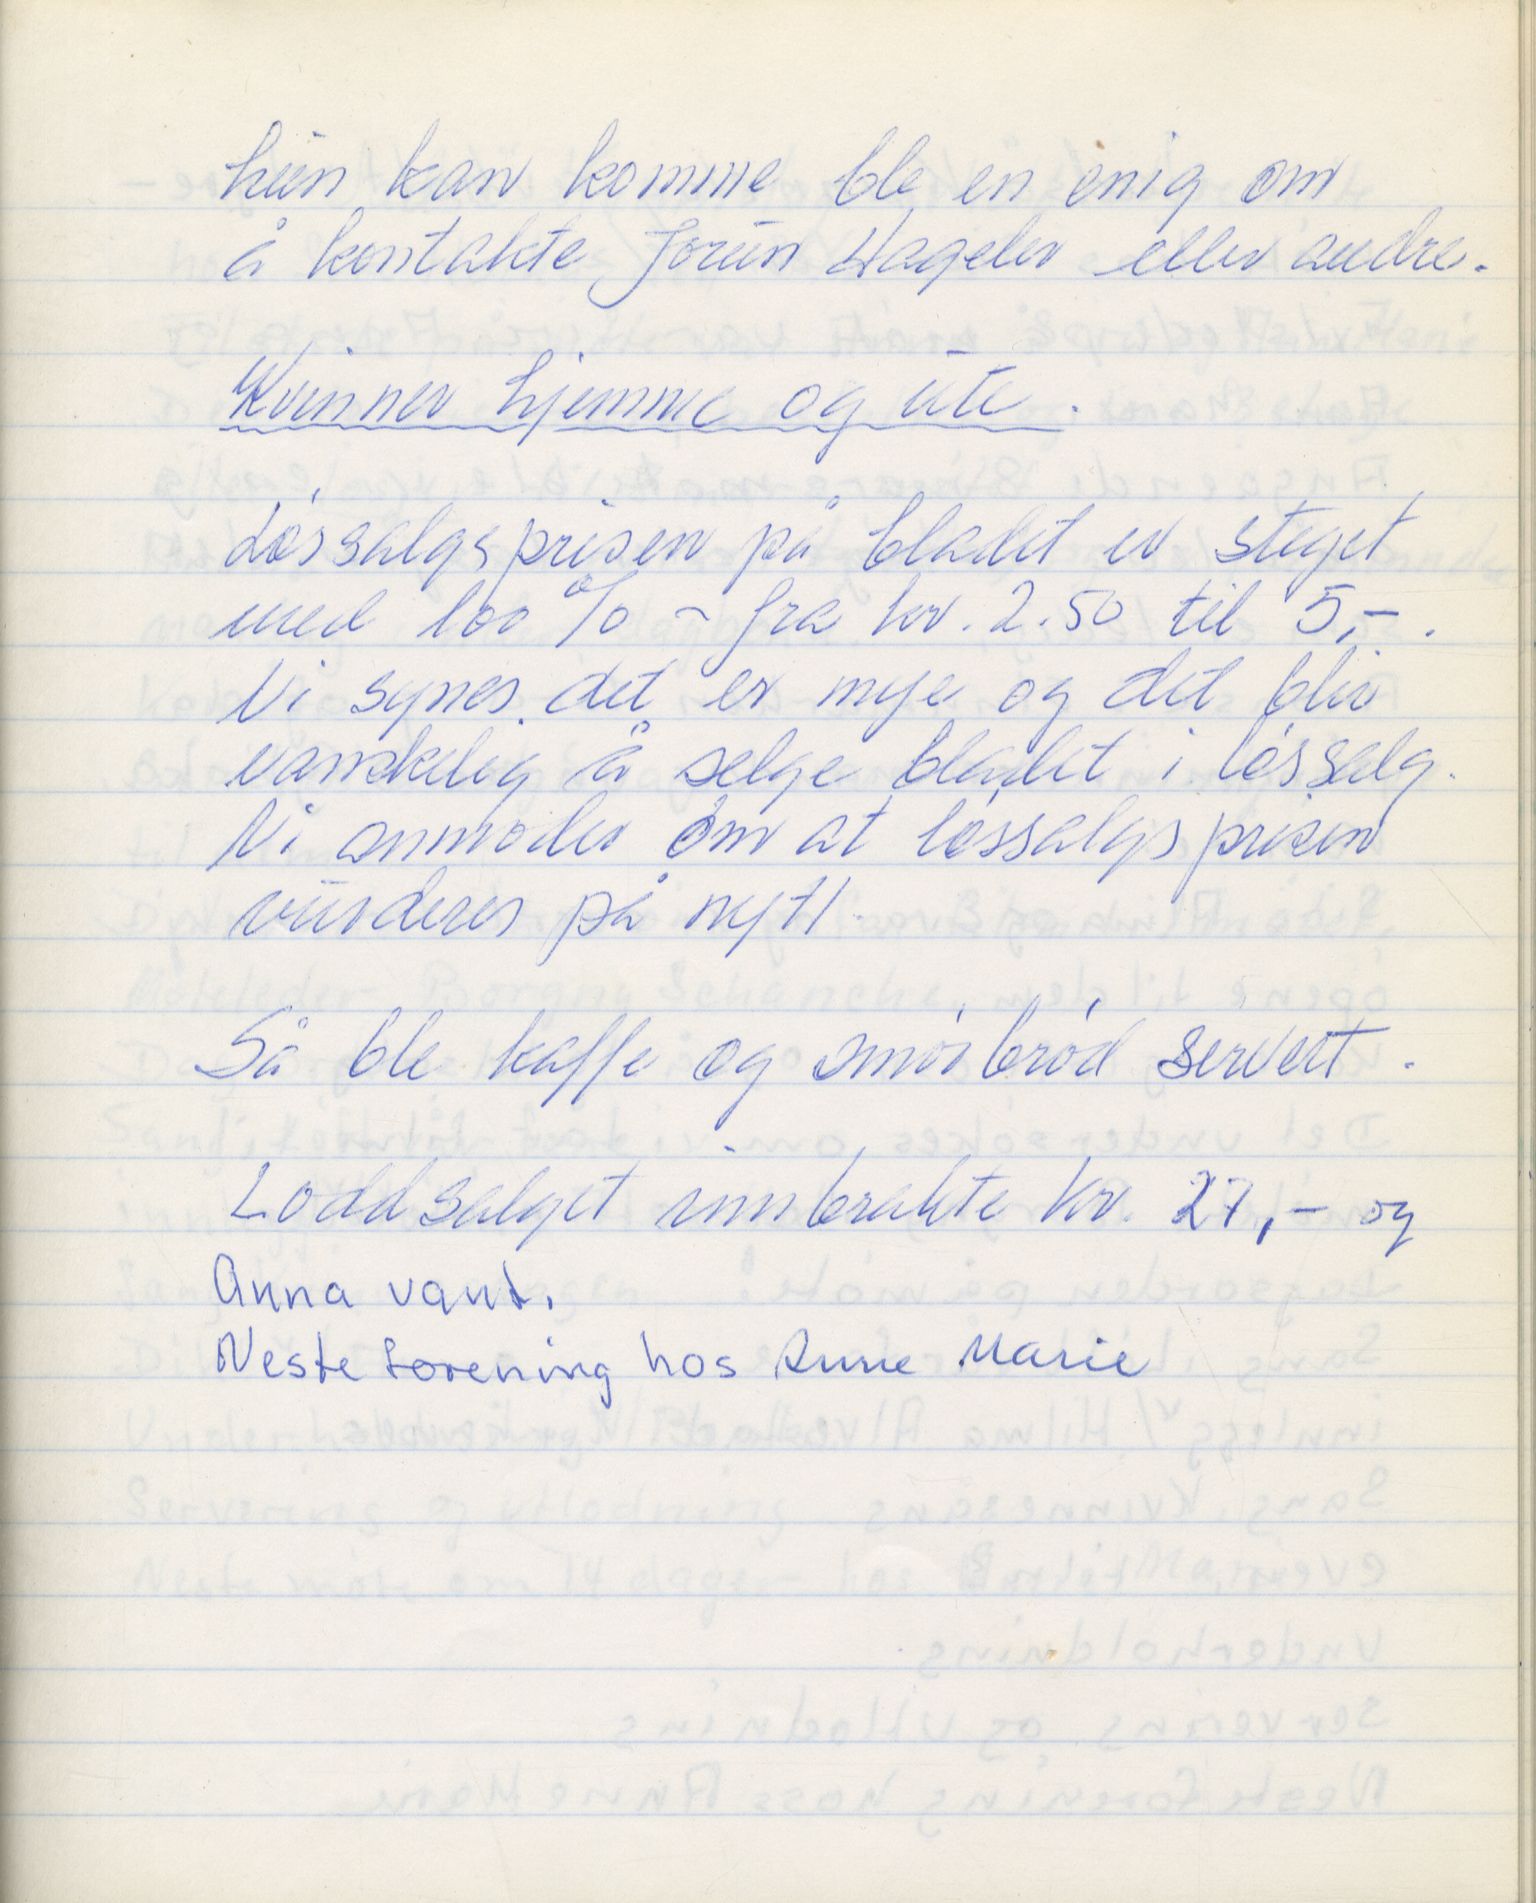 hun kan komme ble en enig om
å kontakte Jorun Hageler eller andre.
Kvinner hjemme og ute.
Løssalgsprisen på bladet er steget
med 100 % - fra kr. 2.50 til 5,-.
Vi synes det er mye og det blir
vanskelig å selge bladet i løssalg.
Vi anmoder om at løssalgsprisen
vurderes på nytt.
Så ble kaffe og smørbrød servert.
Loddsalget innbrakte kr. 27,- og
Anna vant.
Neste forening hos Anne Marie